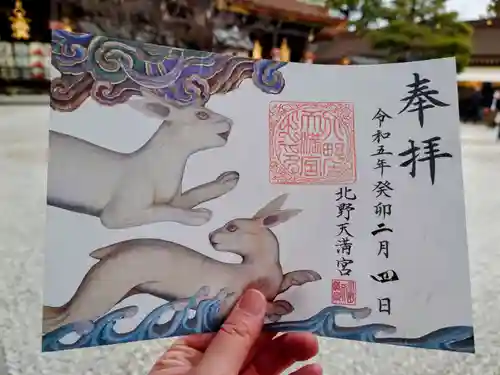 奉拝
令和五年癸卯二月四日
北野天満宮